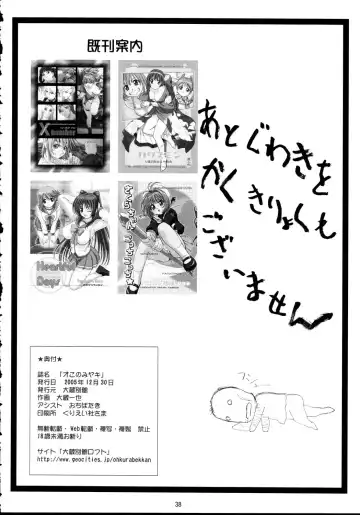 既刊案内
X
number
Heartful
Days
あとぐわきを
かくきりょくも
ございません
★奥付★
誌名 「オこのみヤキ」
発行日 2005年12月30日
発行元 大蔵別館
作画 大蔵一也
アシスト おちばたき
印刷所 くりえい社さま
無断転載・Web転載・複写・複製 禁止
18歳未満お断り
サイト「大蔵別館ロフト」
http://www.geocities.jp/ohkurabekkan
38